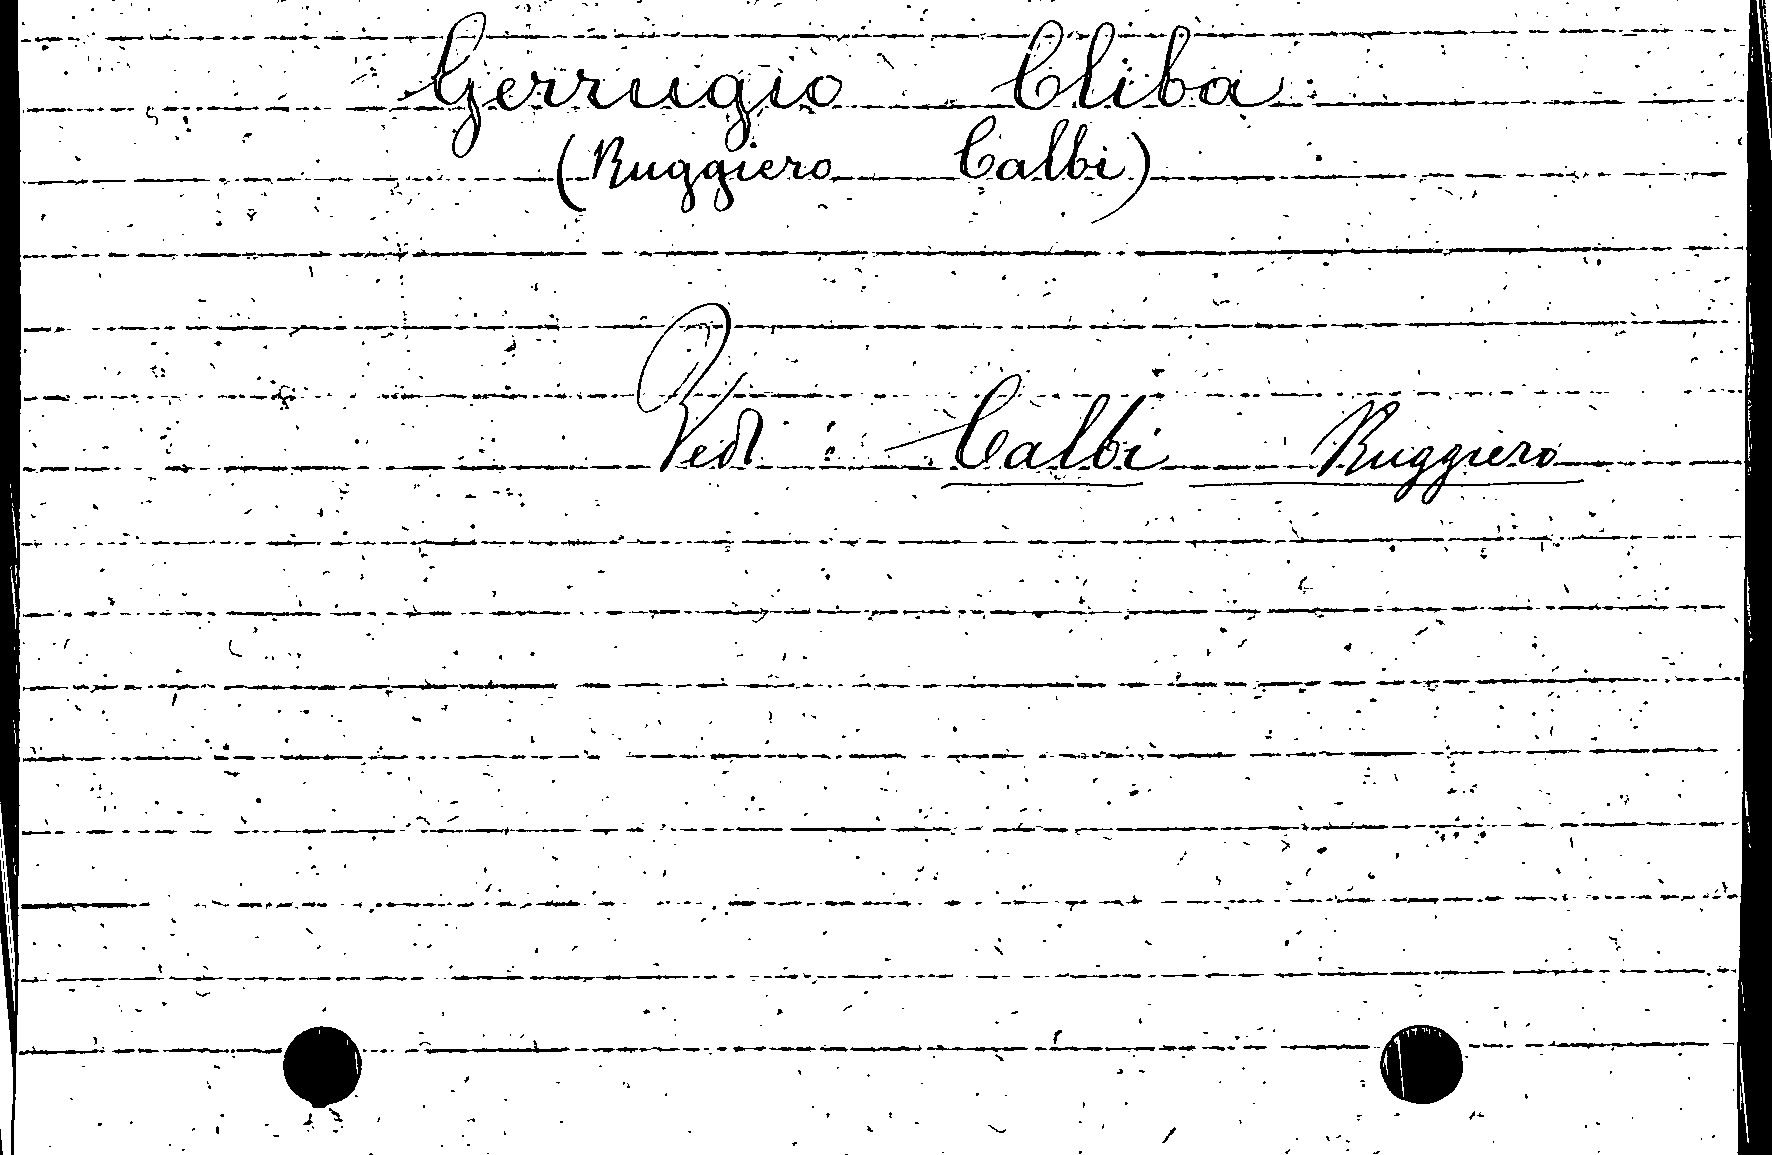 Gerrugio Cliba
(Ruggiero Calbi)
Vedi : Calbi Ruggiero